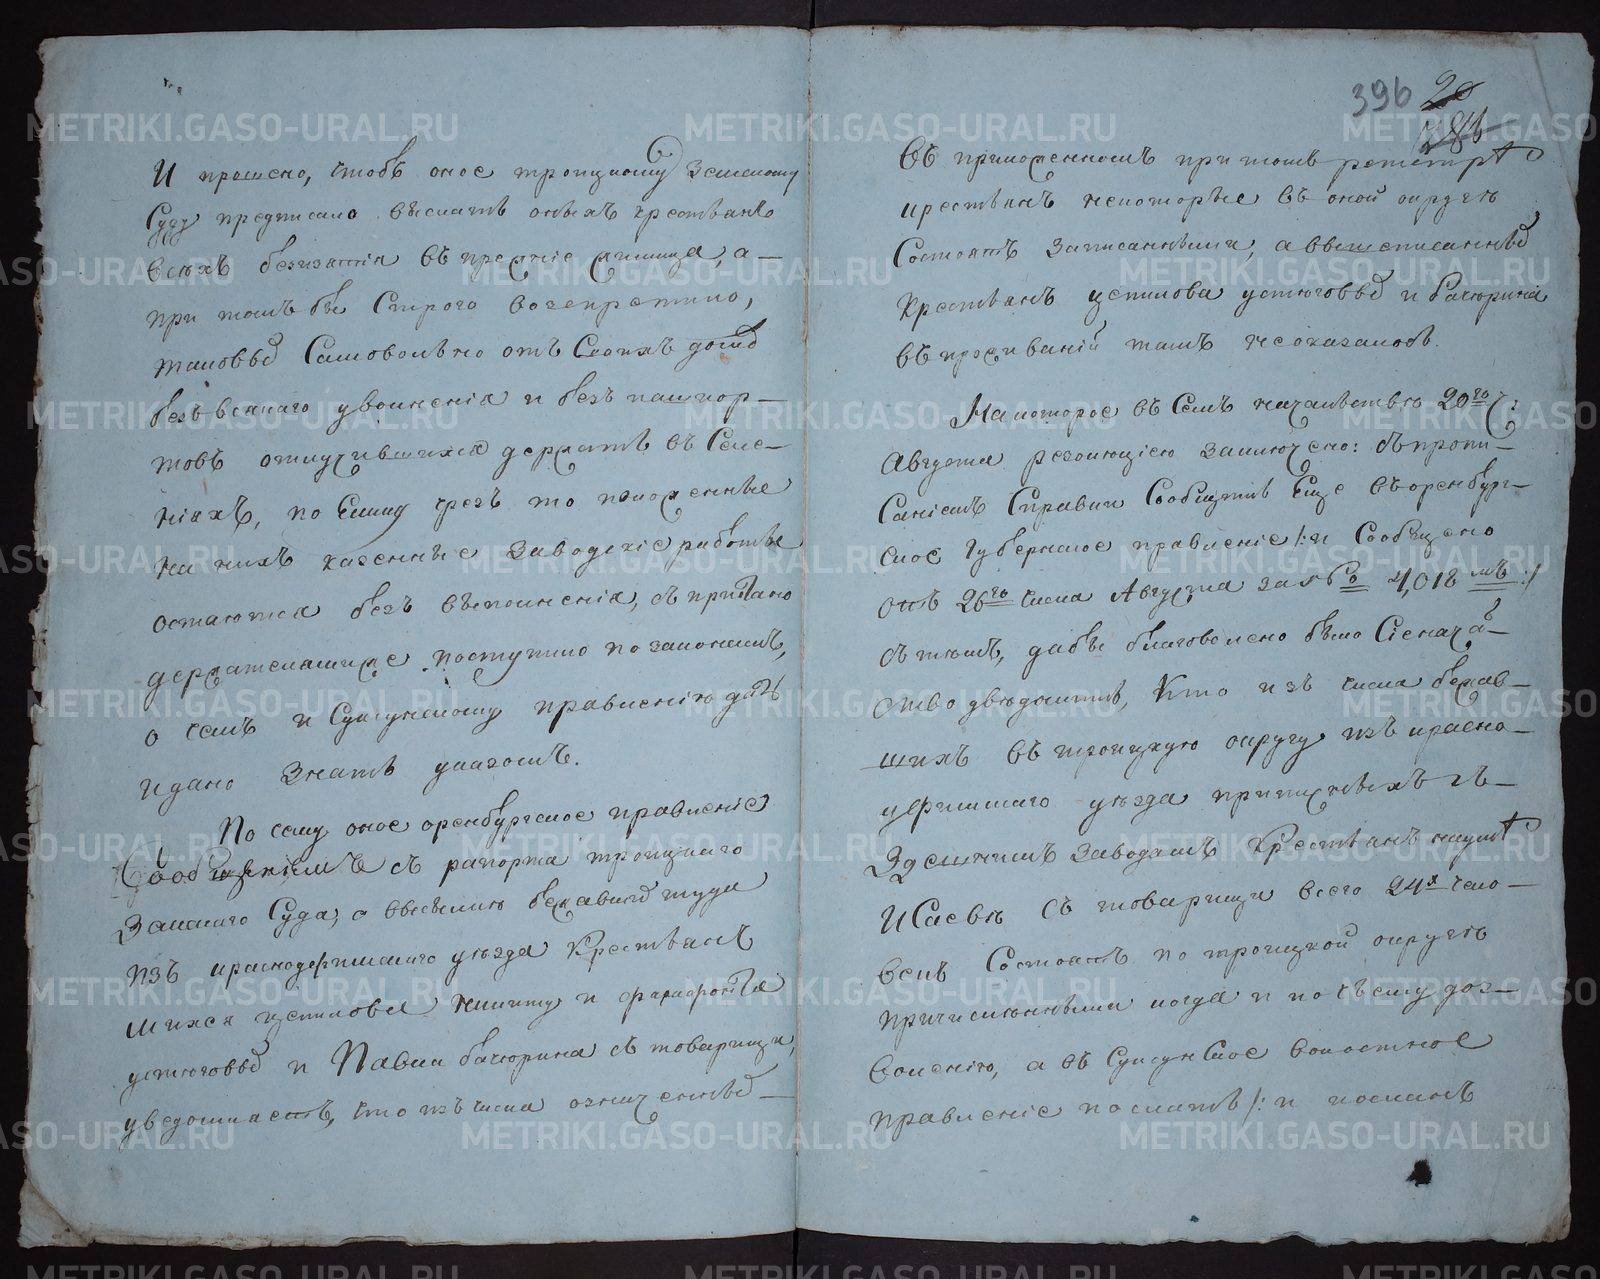 И прошено, чтобъ оное троицкому Земскому
Суду предписало выслать оныхъ крестьянъ
всѣхъ безизятія въ прежніе жилища, а
при томъ бы Строго воспретило,
таковыхъ Самовольно отъ Своихъ домовъ
безъ всякаго увольненія и безъ пашпор-
товъ отлучившихся держать въ Селе-
ніяхъ, по Ему чрезъ то положенные
на нихъ казенные заводскіе работы
остаются безъ выполненія, съ
держателями же поступило по законамъ,
о чемъ и Суксунскому правленію дать
и дано знать указомъ.
По сему оное оренбургское правленіе
Сообщеніемъ съ рапорта троицкаго
Земскаго Суда, о высылке бежавшихъ туда
изъ красноуфимскаго уезда Крестьянъ
Никиту и
устюговыхъ и Павла бачюрина съ товарищи,
уведомляетъ, что изъ числа означенныхъ
396 20
въ приложенномъ при томъ регистрѣ
крестьянъ некоторые въ оной округѣ
Состоятъ записанными, а вышеписанныхъ
Крестьянъ устюговыхъ и бачюрина
въ проживаніи тамъ неоказалось.
На которое въ Семъ началствѣ 20го ч:
Августа резолюціею заключено: съ пропи-
саніемъ Справки Сообщить Еще въ оренбург-
ское Губернское правленіе /: и Сообщено
отъ 26го числа Августа за № 4,018 мъ :/
съ темъ, дабы благоволено было Сіе началъ-
ство уведомить, Кто изъ числа бежав-
шихъ въ троицкую округу изъ красно-
уфимскаго уезда приписныхъ къ
Здешнимъ заводамъ Крестьянъ
ИСаевъ съ товарищи всего 24х чело-
векъ Состоятъ по троицкой округѣ
причисленными когда и по чьему доз-
воленію, а въ Суксунское волостное
правленіе послать /: и посланъ